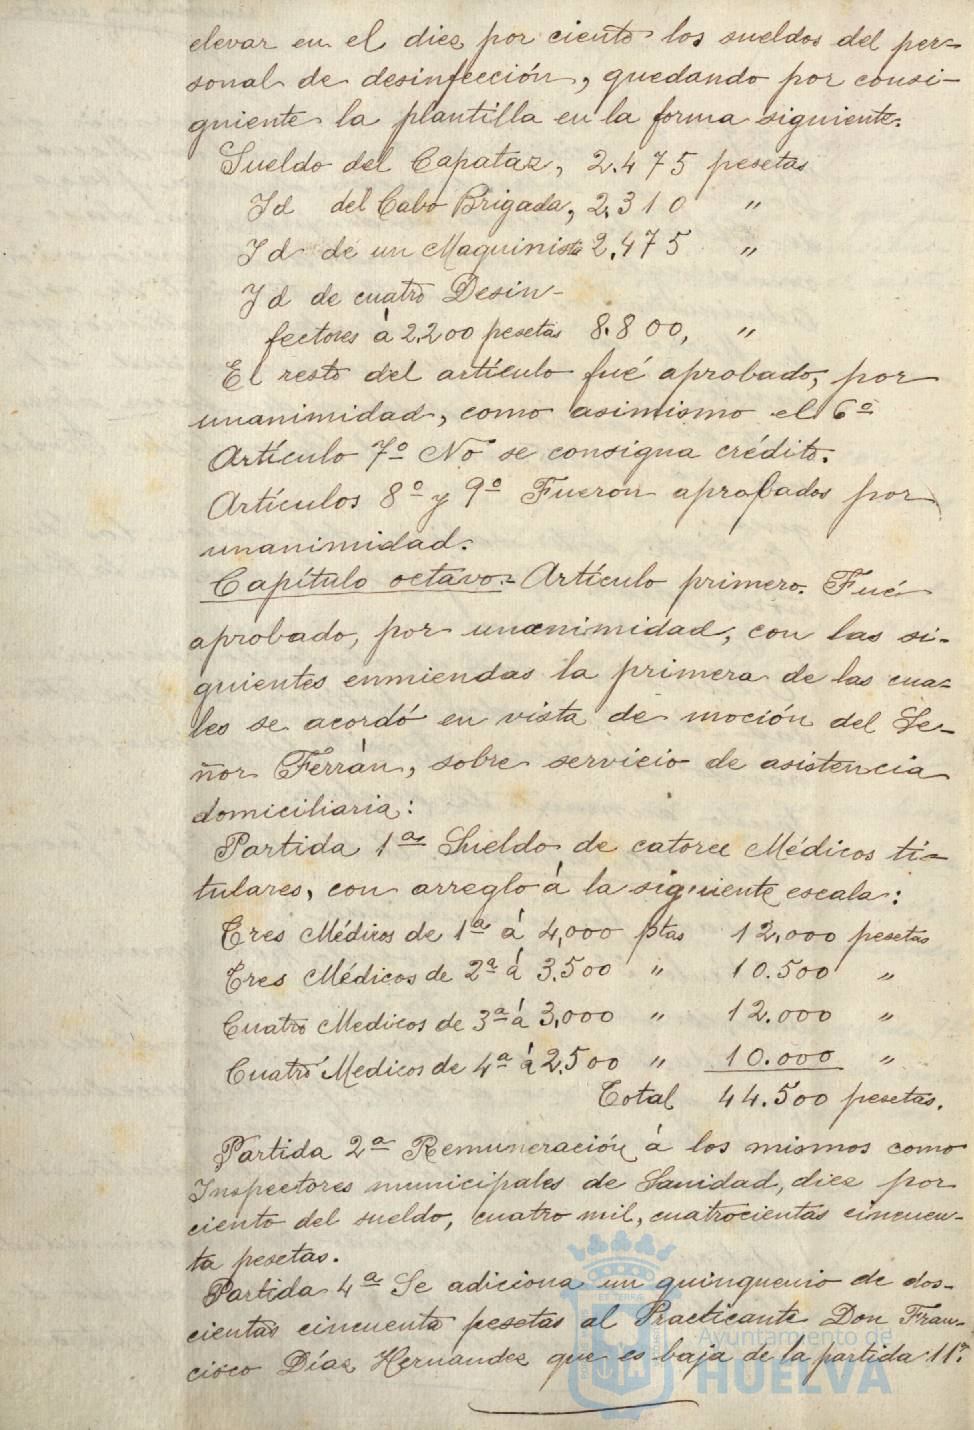 elevar en el diez por ciento los sueldos del per-
sonal de desinfección, quedando por consi-
guiente la plantilla en la forma siguiente.
Sueldo del Capataz, 2.475 pesetas
Id del Cabo Brigada, 2.310 "
Id de un Maquinista 2.475 "
Id de cuatro Desin-
fectores á 2.200 pesetas 8.800, "
El resto del artículo fué aprobado, por
unanimidad, como asimismo el 6º
Artículo 7º No se consigna crédito.
Artículos 8º y 9º Fueron aprobados por
unanimidad.
Capítulo octavo.- Artículo primero. Fué
aprobado, por unanimidad, con las si-
guientes enmiendas la primera de las cua-
les se acordó en vista de moción del Se-
ñor Ferrán, sobre servicio de asistencia
domiciliaria:
Partida 1ª Sueldo de catorce Médicos ti-
tulares, con arreglo á la siguiente escala:
Tres Médicos de 1ª á 4,000 ptas 12,000 pesetas
Tres Médicos de 2ª á 3.500 " 10.500 "
Cuatro Medicos de 3ª á 3,000 " 12.000 "
Cuatro Medicos de 4ª á 2.500 " 10.000 "
Total 44.500 pesetas.
Partida 2ª Remuneración á los mismos como
Inspectores municipales de Sanidad, diez por
ciento del sueldo, cuatro mil, cuatrocientas cincuen-
ta pesetas.
Partida 4ª Se adiciona un quinquenio de dos-
cientas cincuenta pesetas al Practicante Don Fran-
cisco Díaz Hernandez que es baja de la partida 11ª.
Ayuntamiento de
HUELVA